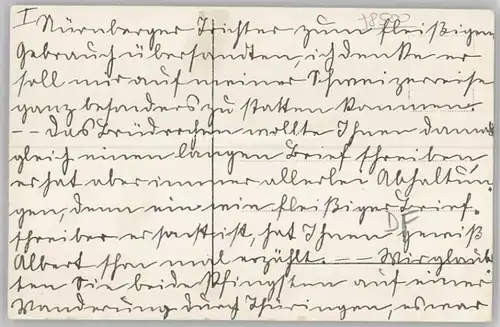 I
18500
Nürnberger Trichter zum fleißigen
Gebrauch übersandten, ich denke er
soll mir auf meiner Schweizerreise
ganz besonders zu statten kommen.
-- Das Brüderchen wollte Ihnen dann
gleich einen langen Brief schreiben,
er hat aber immer allerlei Abhaltun-
gen, denn ein wie fleißiger Brief-
schreiber er sonst ist, hat Ihnen gewiß
DF
Albert schon mal erzählt. -- Wir glaub-
ten Sie beide Pfingsten auf einer
Wanderung durch Thüringen, es war